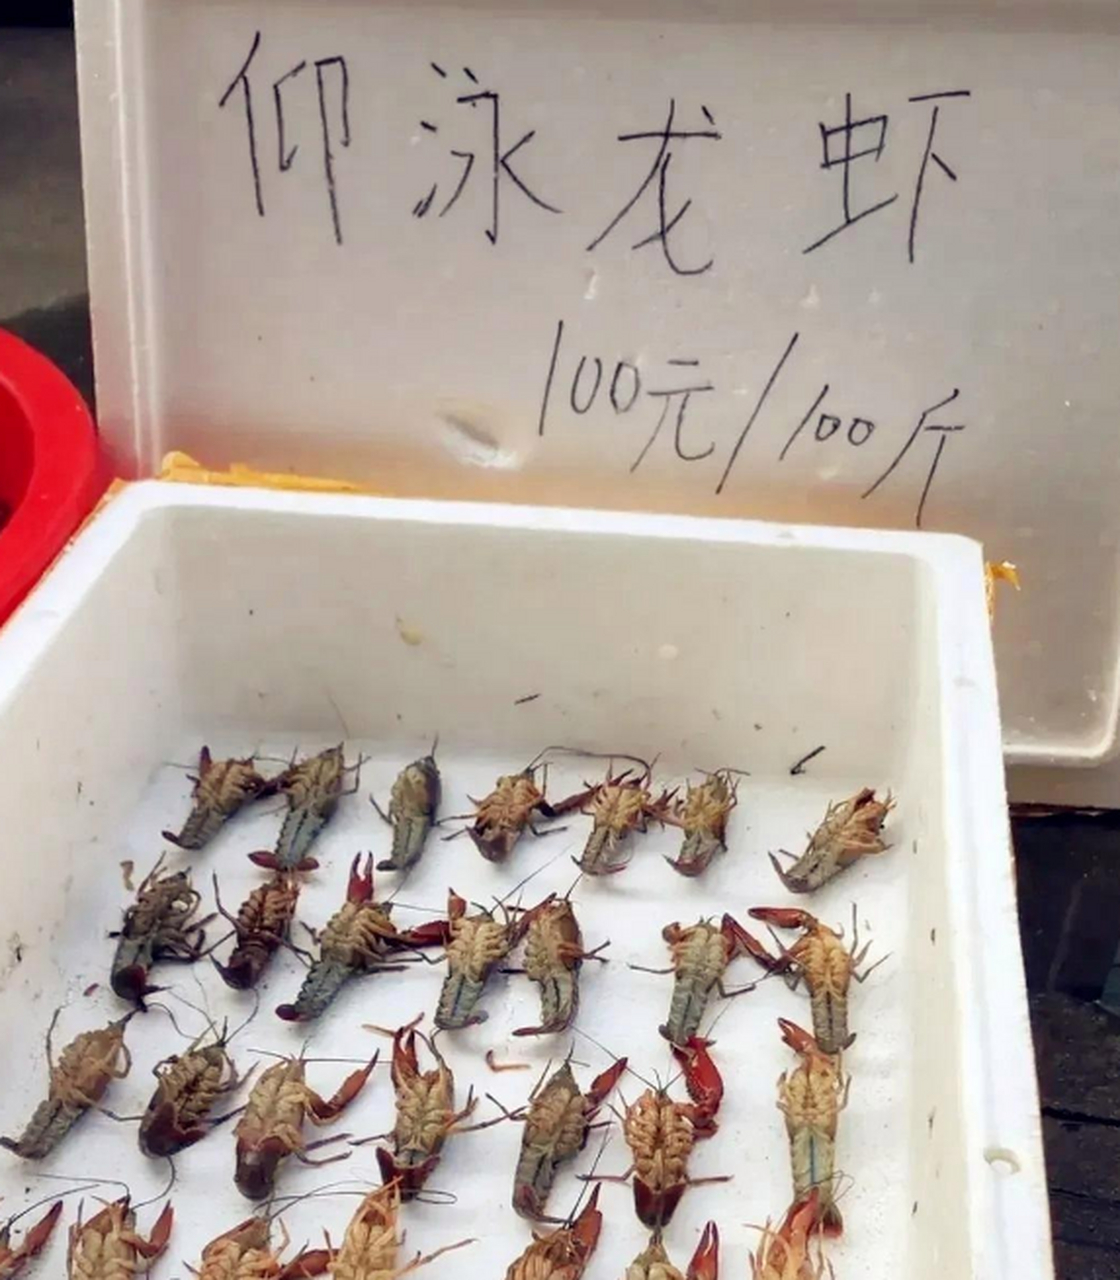 仰泳龙虾
100元/100斤